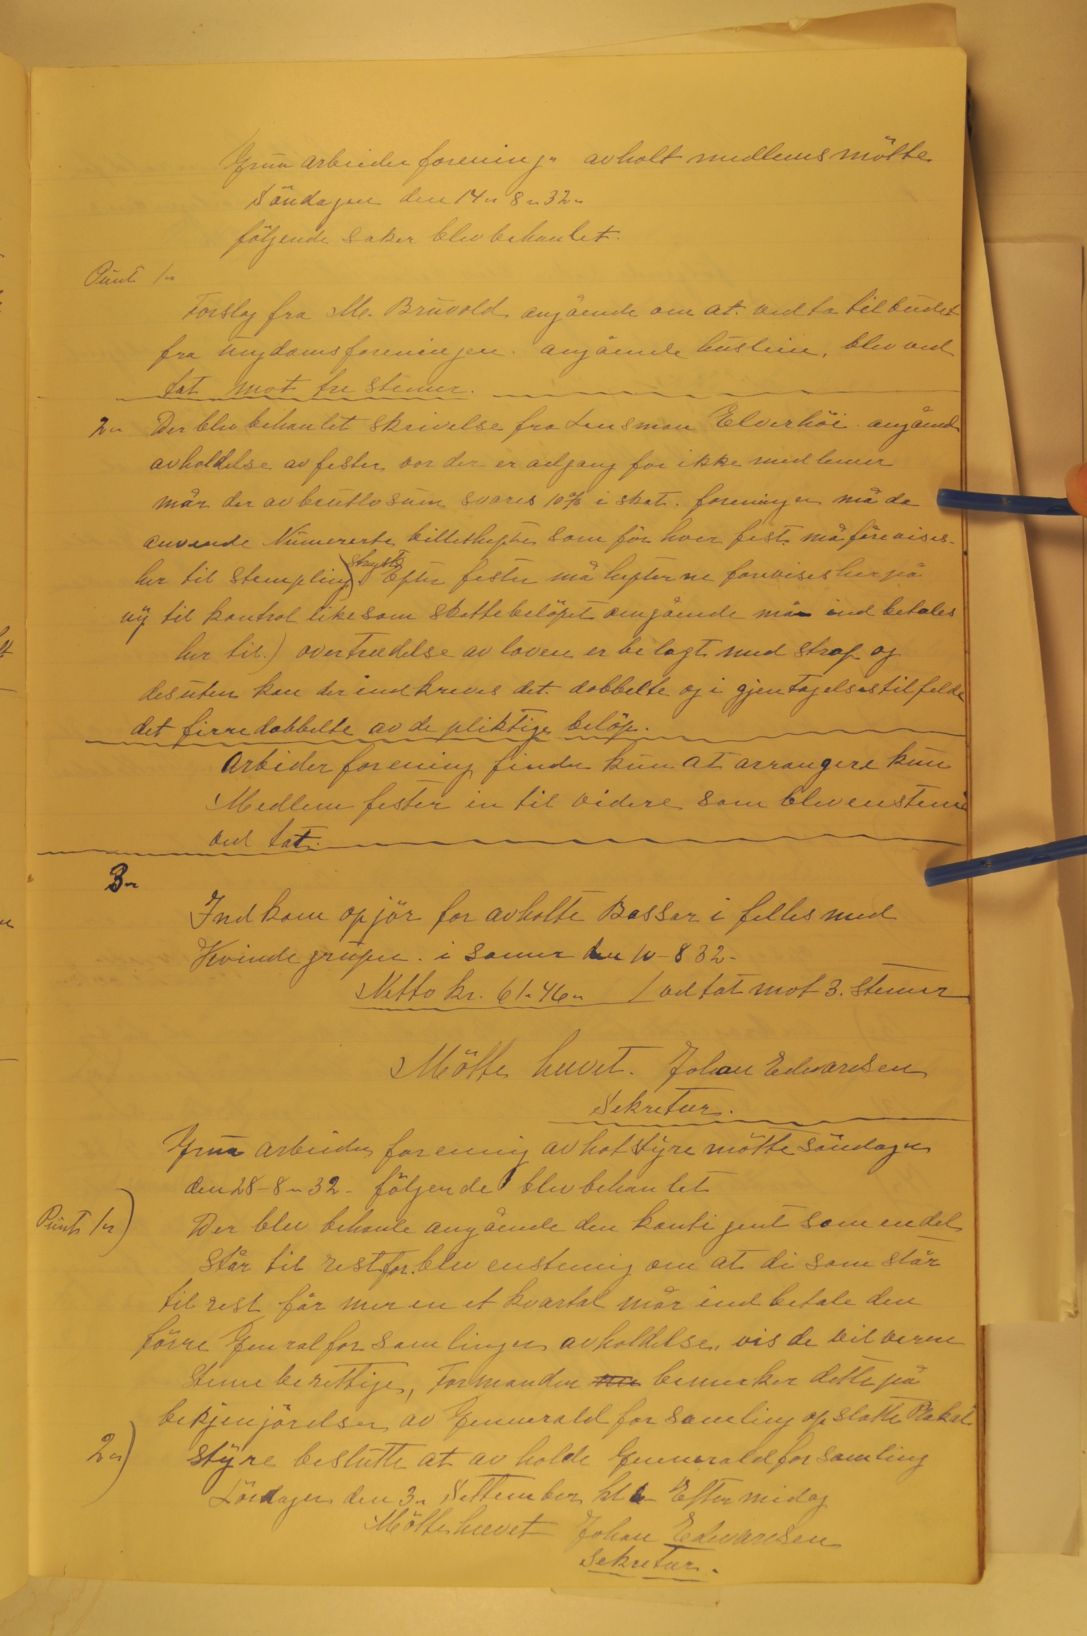 Grua arbeider forening. avholt medlems mötte
Söndagen den 14. 8. 32.
följende saker blev behanlet.
Punt 1.
Forslag fra M. Bruvold angående om at. vedta tilbudet
fra ungdomsforeningen. angående husleie, blev ved
tat mot tre stemer.
2. Der blev behanlet skrivelse fra Lensman Elverhöi angående
avholdelse av fester vor der er adgang for ikke medlemer
når der av bruttosum svares 10% i skat. foreningen må da
anvende Numererte billethefter som för hver fest må forevises
her til stempling) Straffe Efter festen må hefterne forevises her på
ny til kontrol likesom skattebelöpet omgående må indbetales
her til.) overtrædelse av loven er belagt med straf og
desuten kan der indkreves det dobbelte og i gjentagelsestilfelde
det firredobbelte av de pliktige belöp.
Arbeider forening finder kun at arrangere kun
Medlem fester in til videre som blev enstemi
ved tat.
3.
Ind kom opjör for avholte Bassar i felles med
Kvinde grupen. i somer den 10-8 32-
Netto kr. 61.46. / ved tat mot 3. stemer
Mötte hevet. Johan Edvardsen
Sekretær.
Grua arbeider forening av hot styre mötte Söndagen
den 28-8-32. följende blev behanlet
Punt 1.)
Der blev behanle angående den kontigent som endel
står til rest for. blev enstemig om at di som står
til rest får mer en et kvartal mår indbetale den
förre Genralforsamlingen avholdelse, vis de vil være
steme berettige, Formanden bemerker dette på
bekjenjörelsen av Genneraldforsamling opslatte Plakat
2.) Styre beslutte at av holde Genneraldforsamling
Lördagen den 3. Settember kl Eftermidag
Möttehevet Johan Edvardsen
Sekretær.